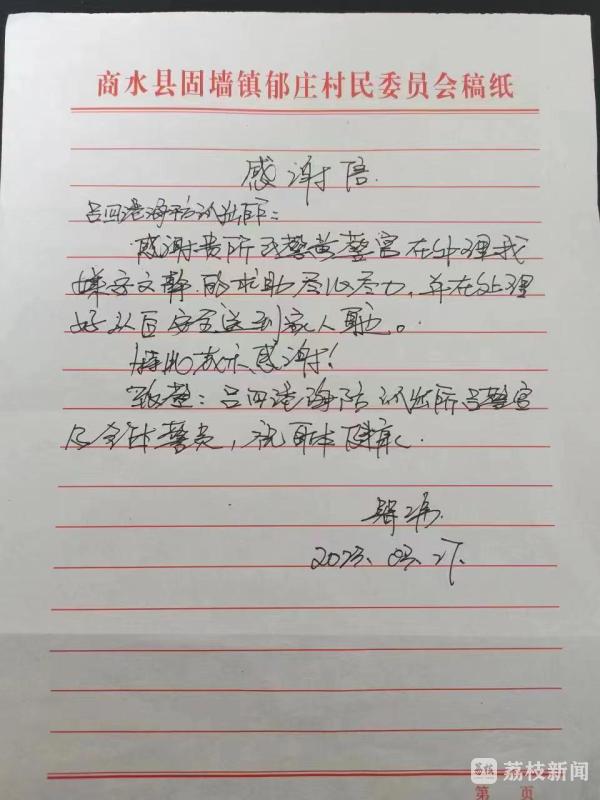 商水县固墙镇郁庄村民委员会稿纸
感谢信
吕四港海防派出所：
感谢贵所民警黄警官在处理我
嫂子文静的求助尽心尽力，并在处理
好以后安全送到家人身边。
特此表示感谢！
致：吕四港海防派出所吕警官
及全体警员，祝身体健康。
2023.03.27.
荔枝新闻
第 页